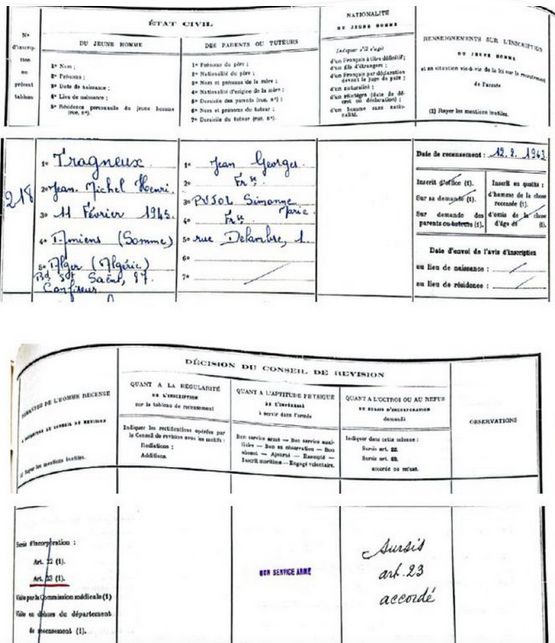 ÉTAT CIVIL
NATIONALITÉ
DU JEUNE HOMME
N°
d'inscrip-
tion
au
présent
tableau
DU JEUNE HOMME
1° Nom ;
2° Prénoms ;
3° Date de naissance ;
4° Lieu de naissance ;
5° Résidence personnelle du jeune homme
(rue, n°).
DES PARENTS OU TUTEURS
1° Prénoms du père ;
2° Nationalité du père ;
3° Nom et prénoms de la mère ;
4° Nationalité d'origine de la mère ;
5° Domicile des parents (rue, n°) ;
6° Nom et prénoms du tuteur ;
7° Domicile du tuteur (rue, n°).
Indiquer s'il s'agit
d'un Français à titre définitif ;
d'un fils d'étrangers ;
d'un Français par déclaration
devant le juge de paix ;
d'un naturalisé ;
d'un réintégré
d'un homme sans natio-
nalité.
RENSEIGNEMENTS SUR L'INSCRIPTION
DU JEUNE HOMME
et sa situation vis-à-vis de la loi sur le recrutement
de l'armée
(1) Rayer les mentions inutiles.
218
1° Tragneux
2° Jean. Michel Henri.
3° 11 Février 1945.
4° Amiens (Somme)
5° Alger (Algérie)
Bd St Saëns, 87.
Confiseur
1° Jean Georges
2° Frs
3° PUJOL Simonne
Marie
4° Frs
5° rue Delambre, 1.
6°
7°
Date de recensement : 12.2.1943
Inscrit d'office (1).
Sur sa demande (1).
Sur demande des
parents ou tuteurs (1).
Inscrit en qualité :
d'homme de la classe
recensée (1).
d'omis de la classe
d'âge de (1).
Date d'envoi de l'avis d'inscription
au lieu de naissance :
au lieu de résidence :
DÉCISION DU CONSEIL DE REVISION
DEMANDES DE L'HOMME RECENSÉ
À PRÉSENTER AU CONSEIL DE REVISION
(1) Rayer les mentions inutiles.
QUANT A LA RÉGULARITÉ
DE L'INSCRIPTION
sur le tableau de recensement
Indiquer les rectifications opérées par
le Conseil de revision sous les motifs :
Radiations ;
Additions.
QUANT A L'APTITUDE PHYSIQUE
DE L'INTÉRESSÉ
à servir dans l'armée
Bon service armé — Bon service auxi-
liaire — Bon en observation — Bon
absent — Ajourné — Exempté —
Inscrit maritime — Engagé volontaire.
QUANT A L'OCTROI OU AU REFUS
DU SURSIS D'INCORPORATION
demandé
Indiquer dans cette colonne :
Sursis art. 22.
Sursis art. 23.
accordé ou refusé.
OBSERVATIONS
Sursis d'incorporation :
Art. 22 (1).
Art. 23 (1).
Visite par la Commission médicale (1)
Visite en dehors du département
de recensement (1).
BON SERVICE ARMÉ
Sursis
art. 23
accordé